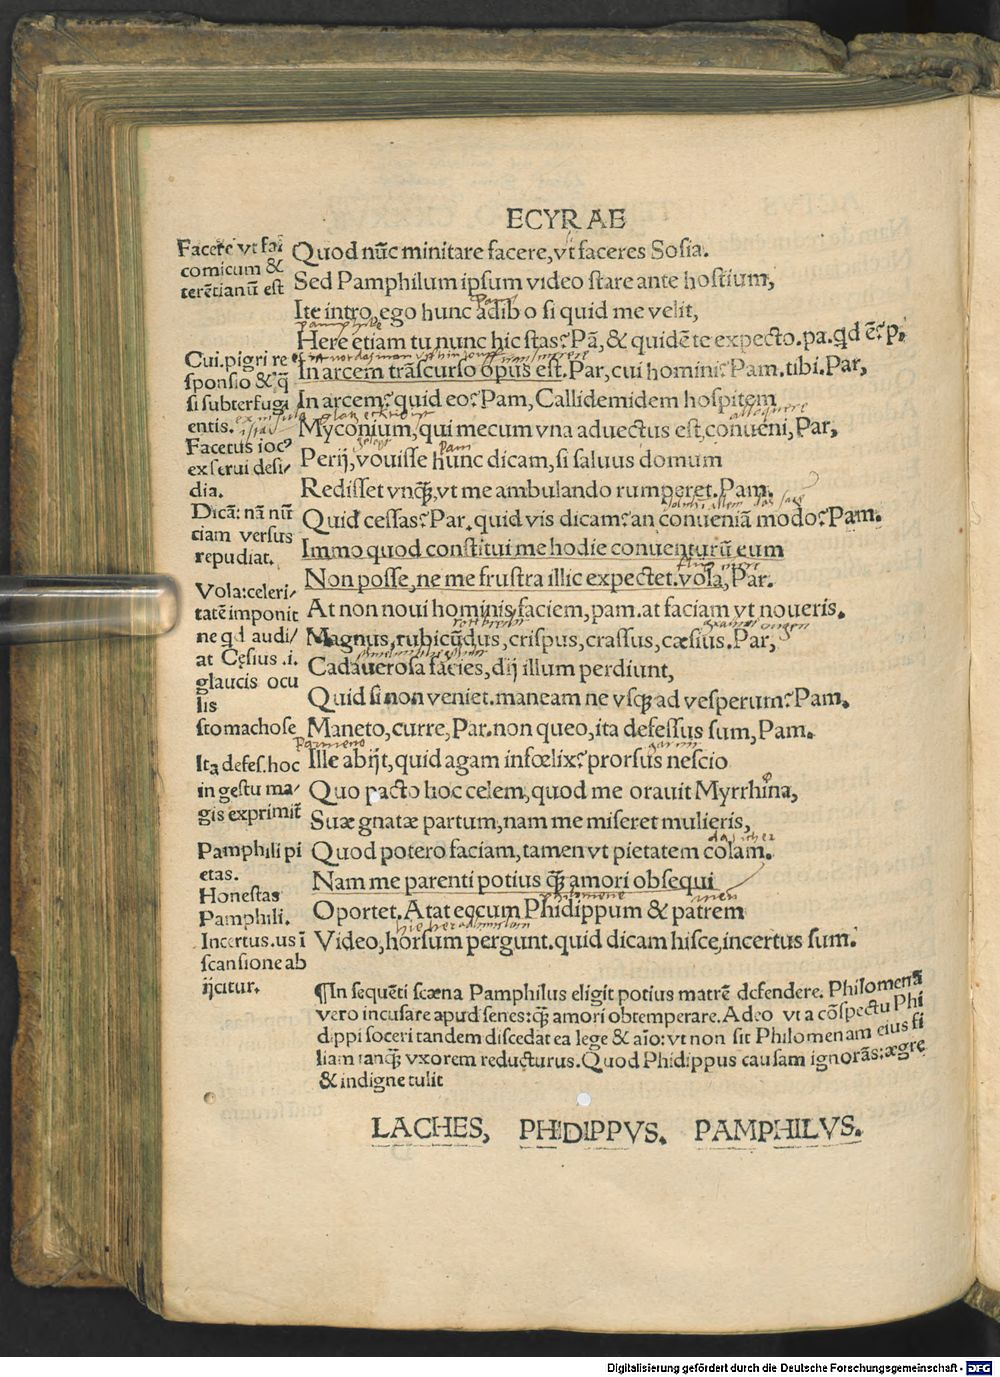 ECYRAE
Facere vt fai
comicum &
terētianū est
Quod nūc minitare facere, vt faceres Sosia.
Sed Pamphilum ipsum video stare ante hostium,
Ite intro, ego hunc adibo si quid me velit,
pamphile
Here etiam tu nunc hic stas? Pā, & quidē te expecto. pa. qd ē? p.
In arcem trāscurso opus est. Par, cui homini? Pam. tibi. Par,
In arcem? quid eo? Pam, Callidemidem hospitem
Myconium, qui mecum vna aduectus est, conueni, Par,
pam
Perij, vouisse hunc dicam, si saluus domum
Redisset vnq̄, vt me ambulando rumperet. Pam.
Quid cessas? Par. quid vis dicam? an conueniā modo? Pam.
Immo quod constitui me hodie conuenturū eum
Non posse, ne me frustra illic expectet. vola, Par.
At non noui hominis faciem, pam. at faciam vt noueris.
Magnus, rubicūdus, crispus, crassus, cæsius. Par,
Cadauerosa facies, dij illum perdiunt,
Quid si non veniet. maneam ne vsq; ad vesperum? Pam.
Maneto, curre, Par. non queo, ita defessus sum, Pam.
Parmeno
Ille abijt, quid agam infœlix? prorsus nescio
Quo pacto hoc celem, quod me orauit Myrrhina,
Suæ gnatæ partum, nam me miseret mulieris,
Quod potero faciam, tamen vt pietatem colam.
Nam me parenti potius q̄ amori obsequi
Oportet. Atat eccum Phidippum & patrem
Video, horsum pergunt. quid dicam hisce, incertus sum.
Cui. pigri re
sponsio & q̄
si subterfugi
entis.
Facetus ioc⁹
ex serui desi/
dia.
Dicā: nā nūt
ciam versus
repudiat.
Vola: celeri/
tatē imponit
ne qd audi/
at Cęsius .i.
glaucis ocu
lis
stomachose
Ita defes. hoc
in gestu ma/
gis exprimit̄
Pamphili pi
etas.
Honestas
Pamphili.
Incertus. us ī
scansione ab
ijcitur.
¶In sequēti scæna Pamphilus eligit potius matrē defendere. Philomenā
vero incusare apud senes: q̄ amori obtemperare. Adeo vt a cōspectu Phi
dippi soceri tandem discedat ea lege & aīo: vt non sit Philomenam eius fi
liam tanq̄ vxorem reducturus. Quod Phidippus causam ignorās: ægre
& indigne tulit
LACHES, PHIDIPPVS. PAMPHILVS.
Digitalisierung gefördert durch die Deutsche Forschungsgemeinschaft - DFG